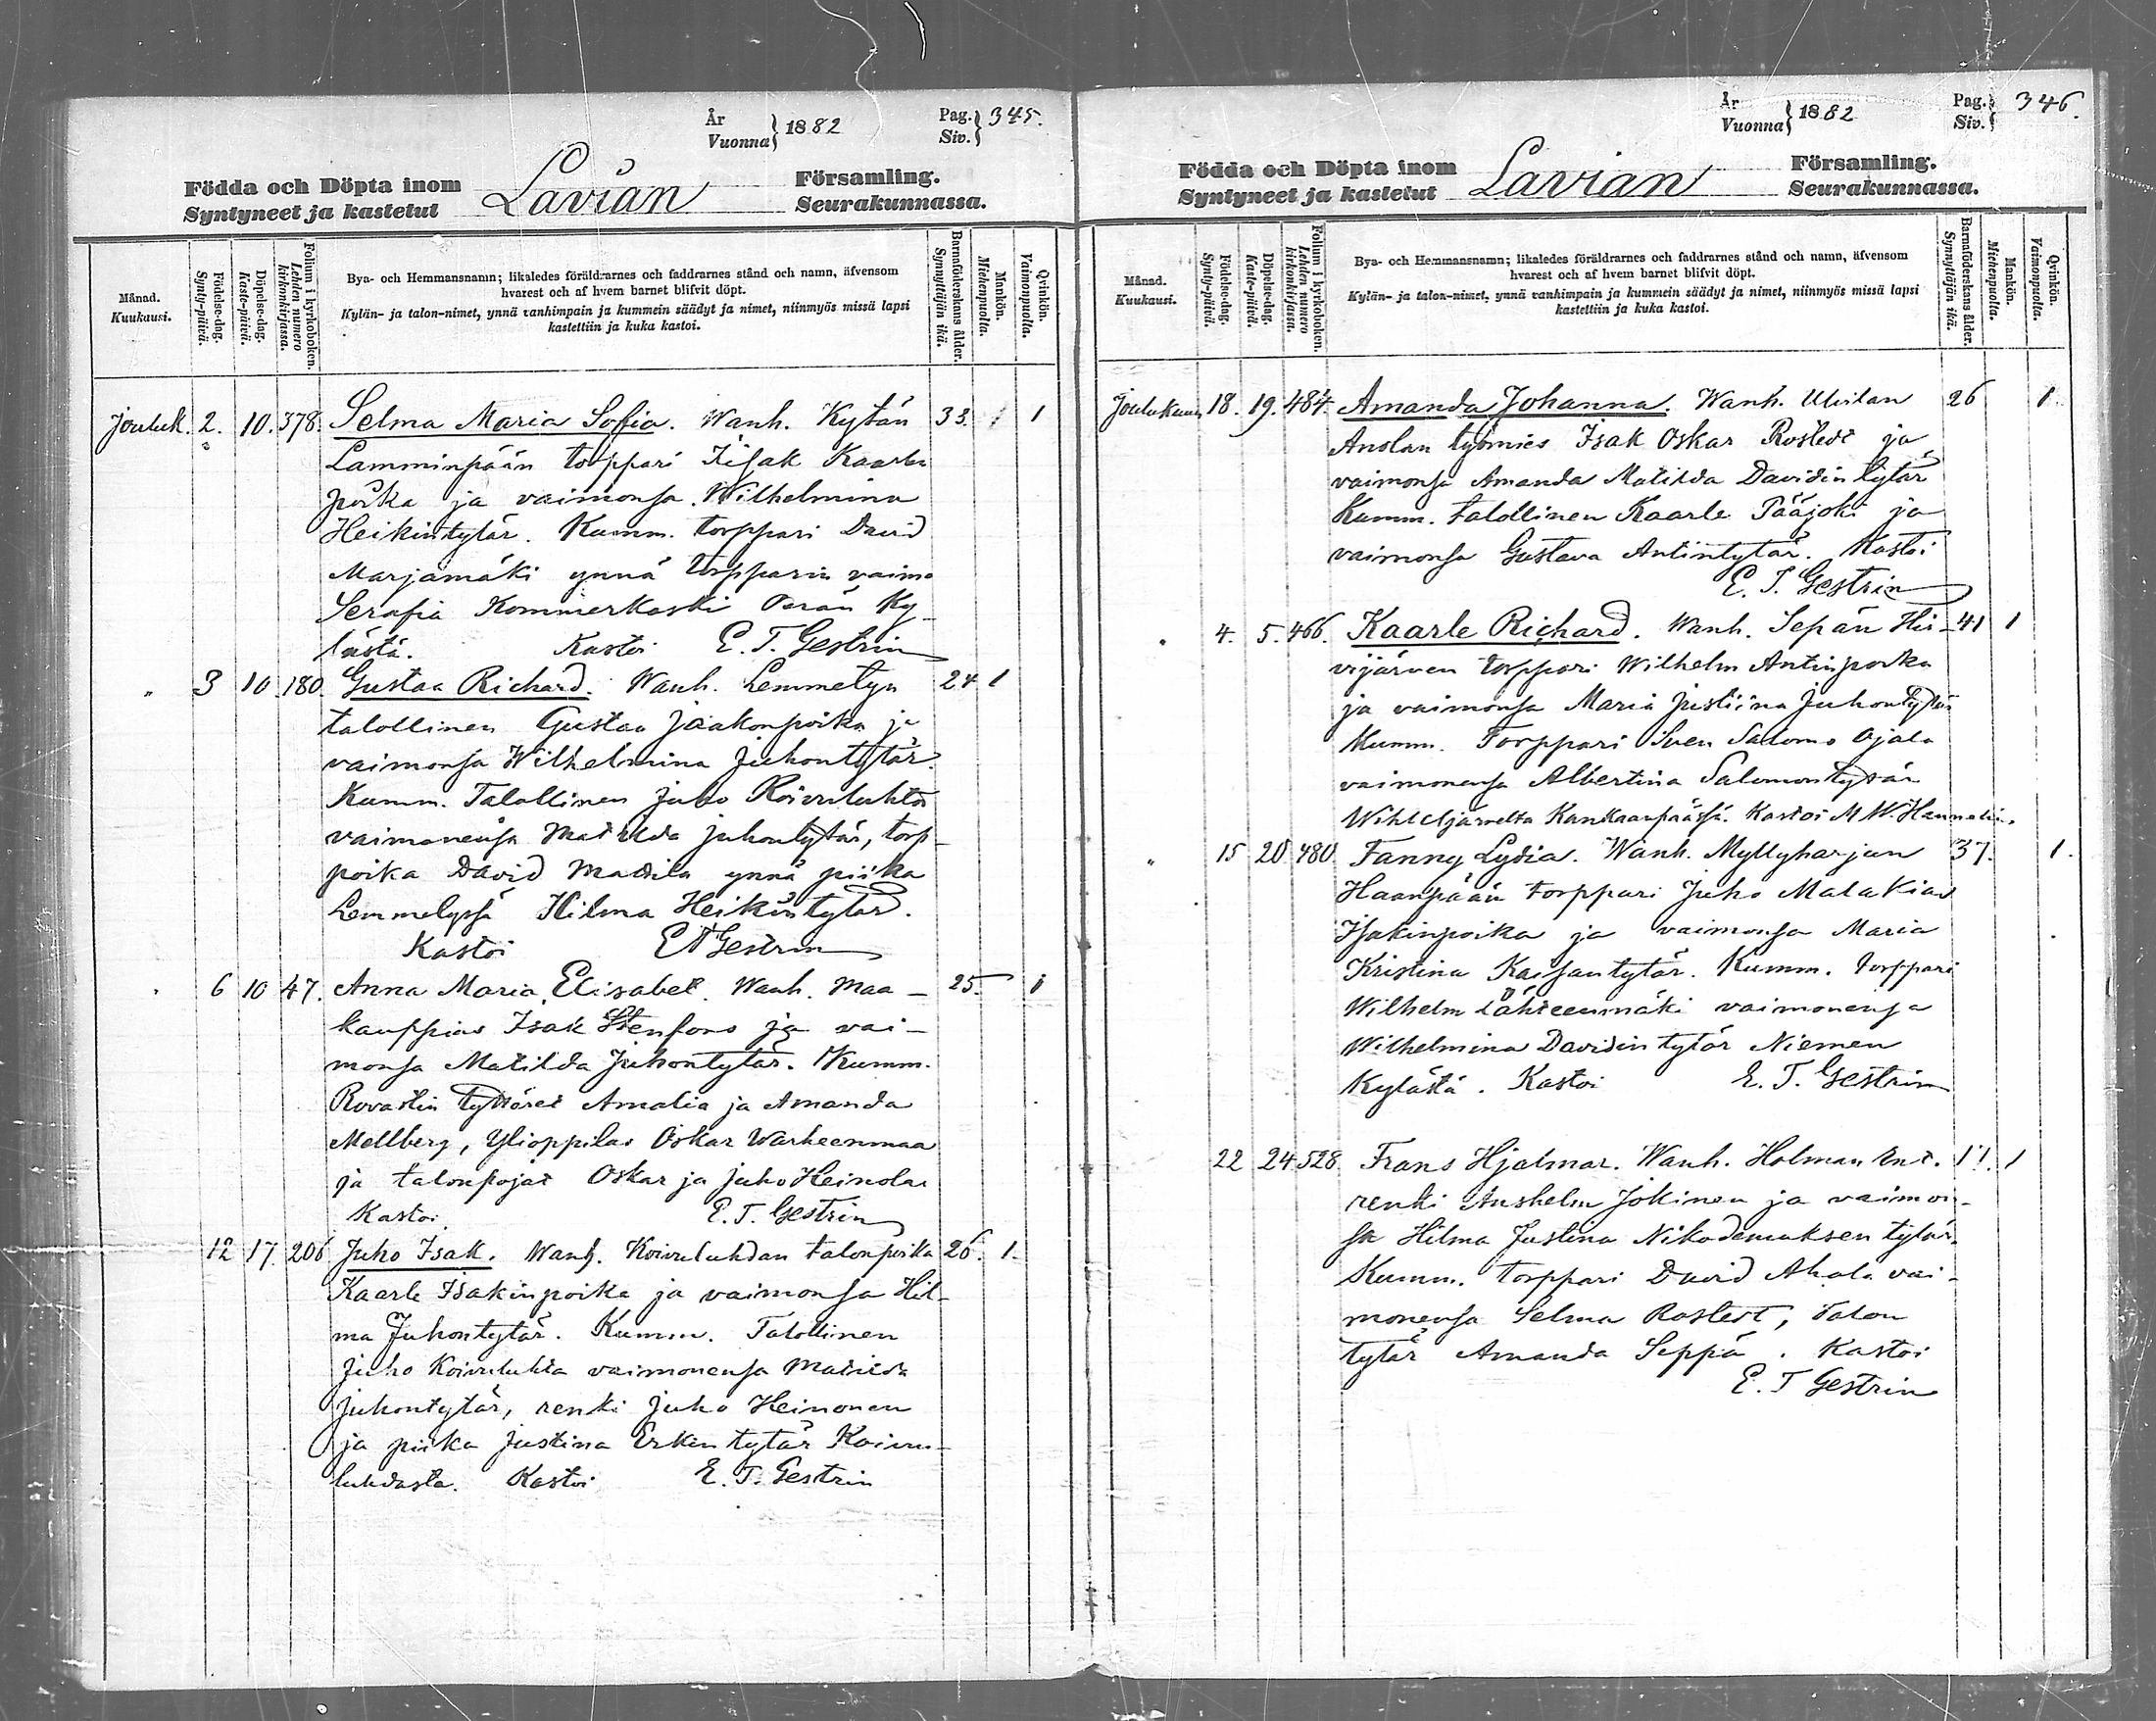 År
Vuonna } 1882
Pag.
Siv. } 345.
Födda och Döpta inom
Syntyneet ja kastetut
Lavian
Församling.
Seurakunnassa.
Månad.
Kuukausi.
Födelse-dag.
Synty-päivä.
Döpelse-dag.
Kaste-päivä.
Folium i kyrkoboken.
Lehden numero
kirkonkirjassa.
Bya- och Hemmansnamn; likaledes föräldrarnes och faddrarnes stånd och namn, äfvensom
hvarest och af hvem barnet blifvit döpt.
Kylän- ja talon-nimet, ynnä vanhimpain ja kummein säädyt ja nimet, niinmyös missä lapsi
kastettiin ja kuka kastoi.
Barnaföderskans ålder.
Synnyttäjän ikä.
Mankön.
Miehenpuolta.
Qvinkön.
Vaimonpuolta.
Jouluk. 2. 10. 378. Selma Maria Sofia. Wanh. Kytän 33. 1
Lamminpään torppari Iisak Kaarle
poika ja vaimonsa Wilhelmina
Heikintytär. Kumm. torppari David
Marjamäki ynnä torpparin vaimo
Serafia Kommerkaski Perän Ky-
lästä. Kastoi E. T. Gestrin
" 3 10 180. Gustaa Richard. Wanh. Lemmetyn 24 1
talollinen Gustaa Jaakonpoika ja
vaimonsa Wilhelmina Juhontytär.
Kumm. Talollinen Juho Koivuluhta
vaimonensa Matilda Juhontytär, torp-
poika David Mattila ynnä piika
Lemmetyssä Hilma Heikintytär.
Kastoi E T Gestrin
" 6 10 47. Anna Maria Elisabet. Wanh. Maa- 25. 1
kauppias Isak Stenfors ja vai-
monsa Matilda Juhontytär. Kumm.
Rovastin tyttäret Amalia ja Amanda
Mellberg, Ylioppilas Oskar Warheenmaa
ja talonpojat Oskar ja Juho Heinola
Kastoi E. T. Gestrin
12 17. 206 Juho Isak. Wanh. Koivuluhdan talonpoika 26. 1.
Kaarle Isakinpoika ja vaimonsa Hil-
ma Juhontytär. Kumm. Talollinen
Juho Koivuluhta vaimonensa Matilda
Juhontytär, renki Juho Heinonen
ja piika Justina Erkintytär Koivu-
luhdasta. Kastoi E. T. Gestrin
År
Vuonna } 1882
Pag.
Siv. } 346.
Födda och Döpta inom
Syntyneet ja kastetut
Lavian
Församling.
Seurakunnassa.
Månad.
Kuukausi.
Födelse-dag.
Synty-päivä.
Döpelse-dag.
Kaste-päivä.
Folium i kyrkoboken.
Lehden numero
kirkonkirjassa.
Bya- och Hemmansnamn; likaledes föräldrarnes och faddrarnes stånd och namn, äfvensom
hvarest och af hvem barnet blifvit döpt.
Kylän- ja talon-nimet, ynnä vanhimpain ja kummein säädyt ja nimet, niinmyös missä lapsi
kastettiin ja kuka kastoi.
Barnaföderskans ålder.
Synnyttäjän ikä.
Mankön.
Miehenpuolta.
Qvinkön.
Vaimonpuolta.
Joulukuun 18. 19. 484. Amanda Johanna. Wanh. Ulvilan 26 1
Anolan työmies Isak Oskar Rostedt ja
vaimonsa Amanda Matilda Davidin tytär
Kumm. talollinen Kaarle Pääjoki ja
vaimonsa Gustava Antintytär. Kastoi
E. T. Gestrin
" 4. 5. 466. Kaarle Richard. Wanh. Sepän Hir- 41 1
vijärven torppari Wilhelm Antinpoika
ja vaimonsa Maria Justiina Juhontytär
Kumm. Torppari Sven Salomo Ojala
vaimonensa Albertina Salomontytär
Kankaanpäässä. Kastoi M W. Hannelin.
" 15 20. 480. Fanny Lydia. Wanh. Myllyharjun 37. 1.
Haanpään torppari Juho Malakias
Isakinpoika ja vaimonsa Maria
Kristina Kaisantytär. Kumm. torppari
Wilhelm Lähteenmäki vaimonensa
Wilhelmina Davidin tytär Niemen
Kylästä. Kastoi E. T. Gestrin
22 24. 528. Frans Hjalmar. Wanh. Holman 17. 1
renki Anshelm Jokinen ja vaimon-
sa Hilma Justina Nikodemuksen tytär.
Kumm. torppari David Ahola vai-
monensa Selma Rostedt, talon
tytär Amanda Seppä. Kastoi
E. T Gestrin